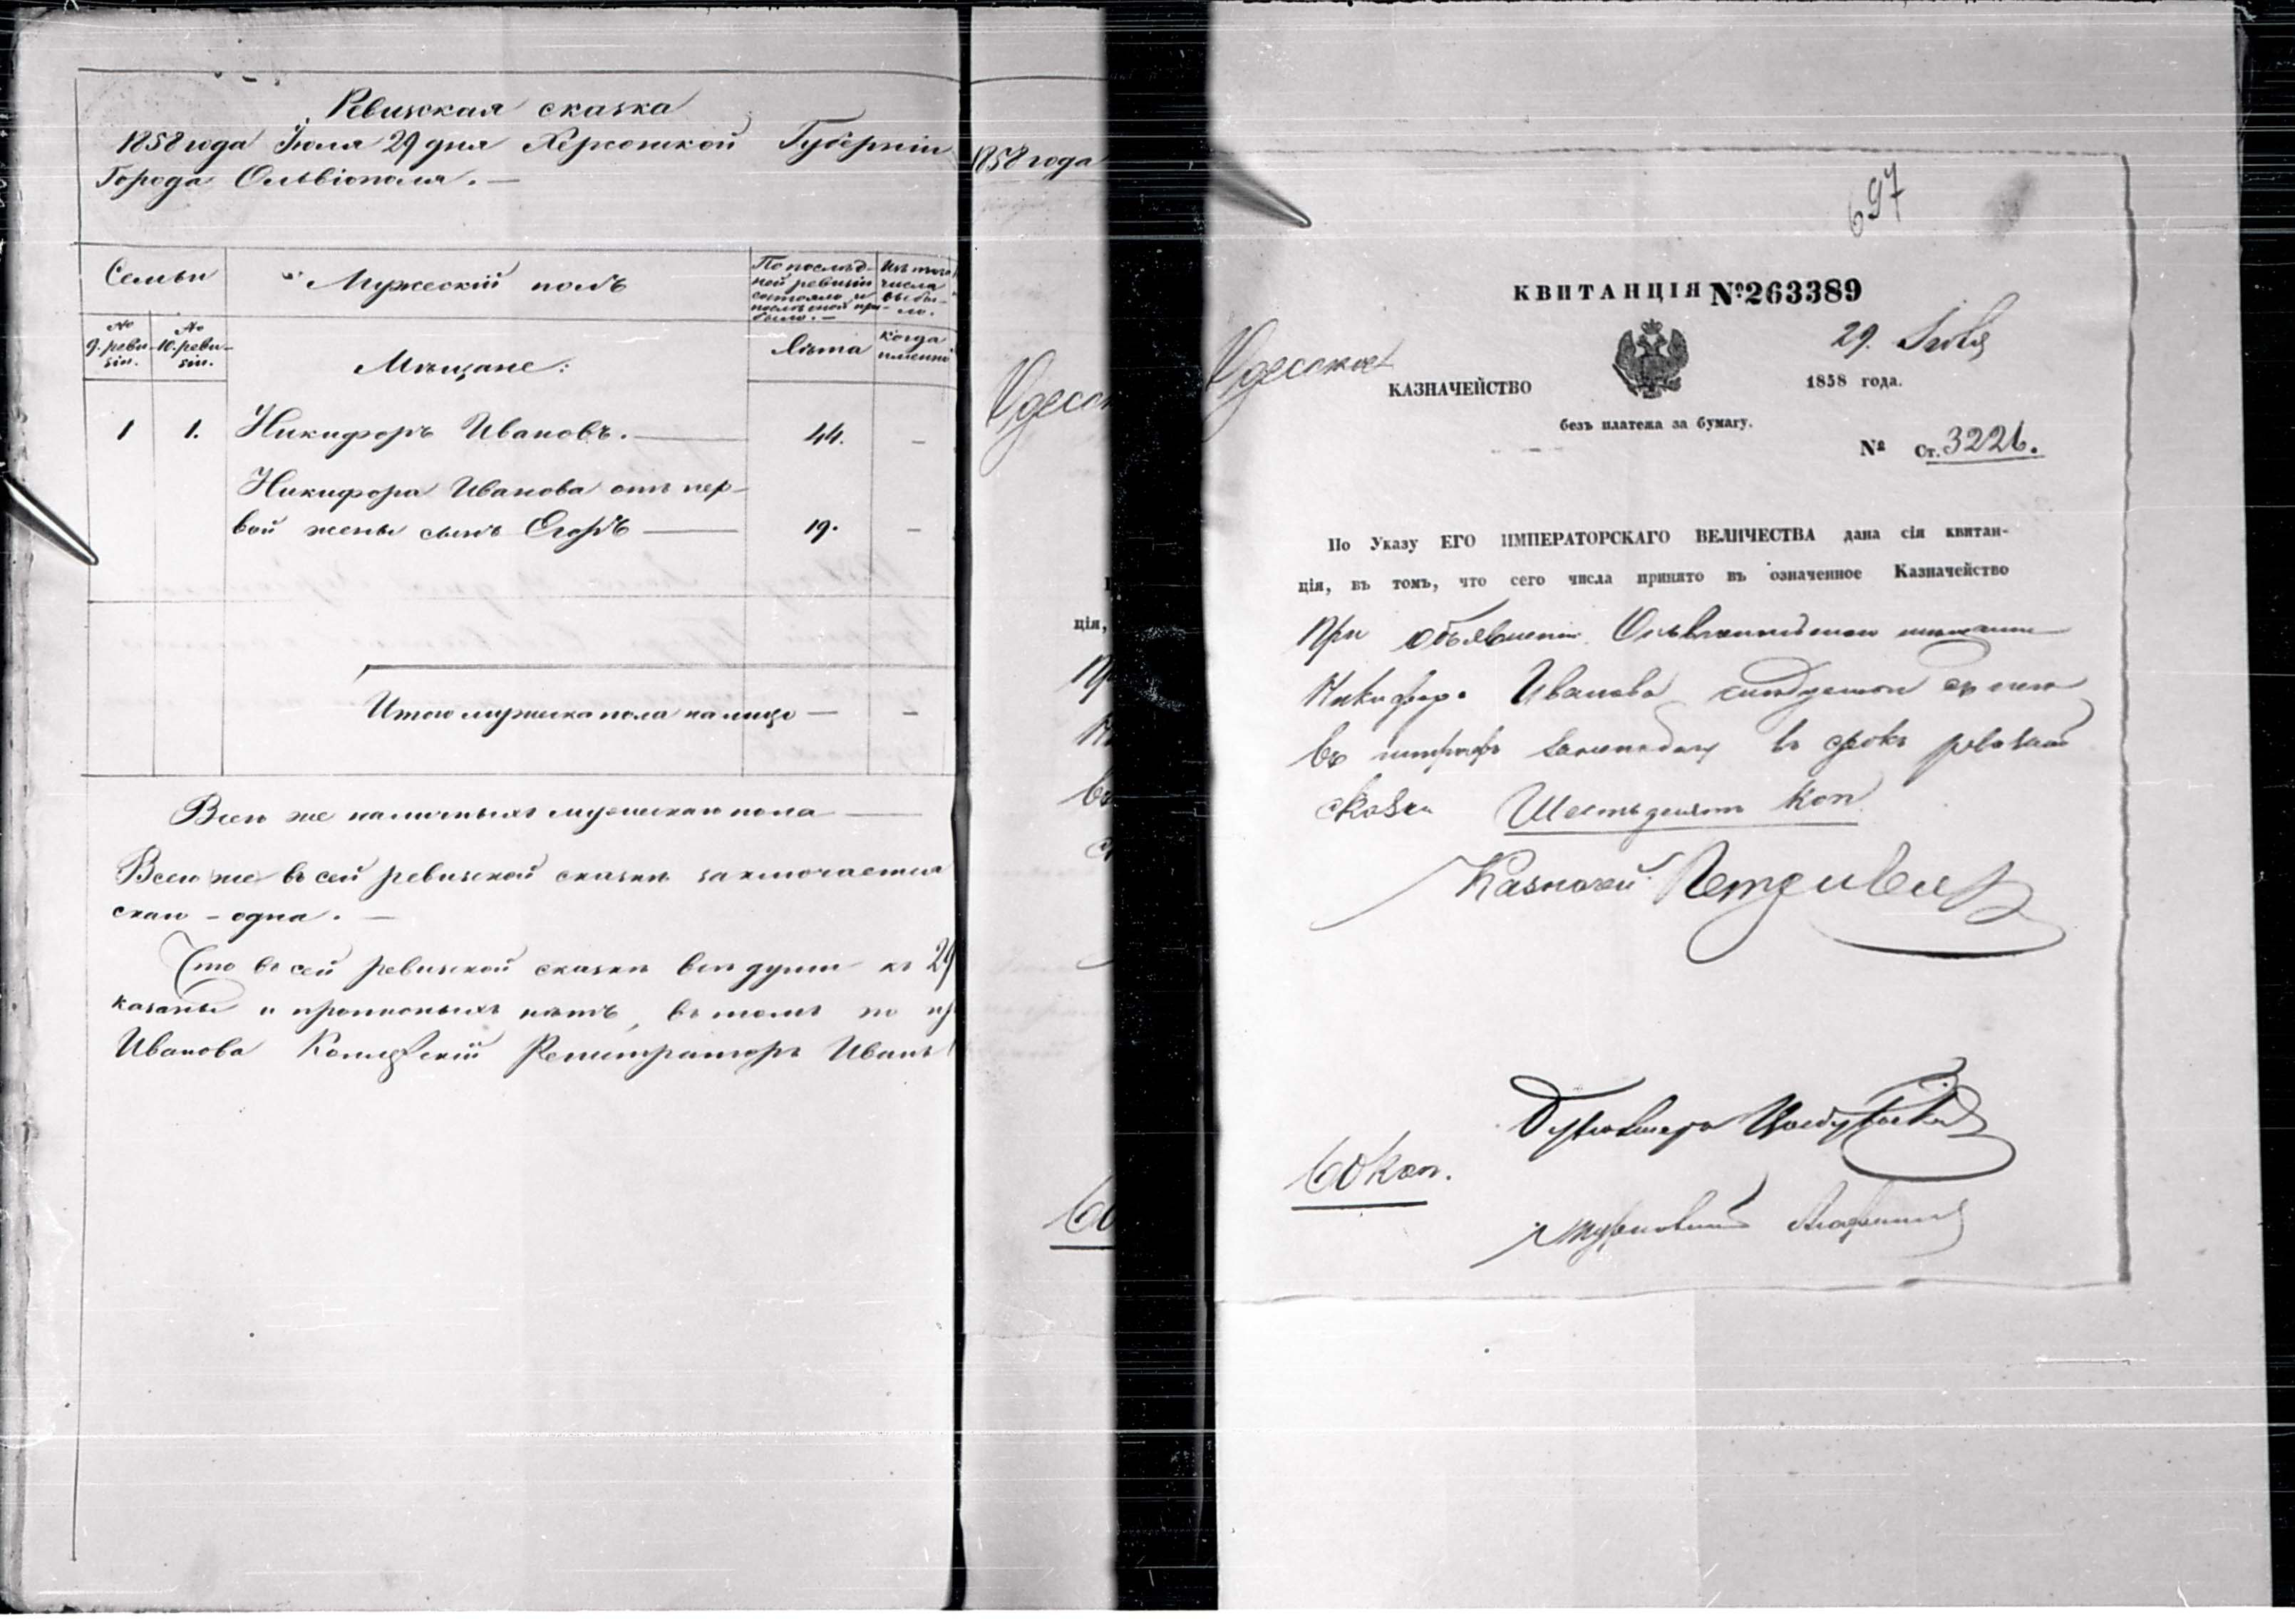 Ревизская сказка
1858 года Іюля 29 дня Херсонской Губерніи
Города Ольвіополя. —
Семьи
Мужескій полъ
По послѣд-
ней ревизіи
состояло и
послѣ оной при-
было. —
Изъ того
числа
выбы-
ло.
№
9. реви-
зіи.
№
10. реви-
зіи.
Мѣщане:
Лѣта
когда
именно
1 1. Никифоръ Ивановъ. — 44. —
Никифора Иванова отъ пер-
вой жены сынъ Егоръ — 19. —
Итого мужеска пола на лицо — —
Всего же наличныхъ мужескаго пола —
Всего же въ сей ревизской сказкѣ заключается
одна. —
Что въ сей ревизской сказкѣ всѣ души къ 29
казаны и прописныхъ нѣтъ, въ томъ по
Иванова Коллежскій Регистраторъ Иванъ
1858 года
Одесс
ція,
60
697
КВИТАНЦІЯ №263389
29. Іюля
Одесское
КАЗНАЧЕЙСТВО
1858 года.
безъ платежа за бумагу.
№ Ст. 3226.
По Указу ЕГО ИМПЕРАТОРСКАГО ВЕЛИЧЕСТВА дана сія квитан-
ція, въ томъ, что сего числа принято въ означенное Казначейство
При объявленіи
Никифора Иванова
въ штрафъ въ срокъ ревизской
сказки Шестьдесятъ Коп.
Казначей
60 коп.